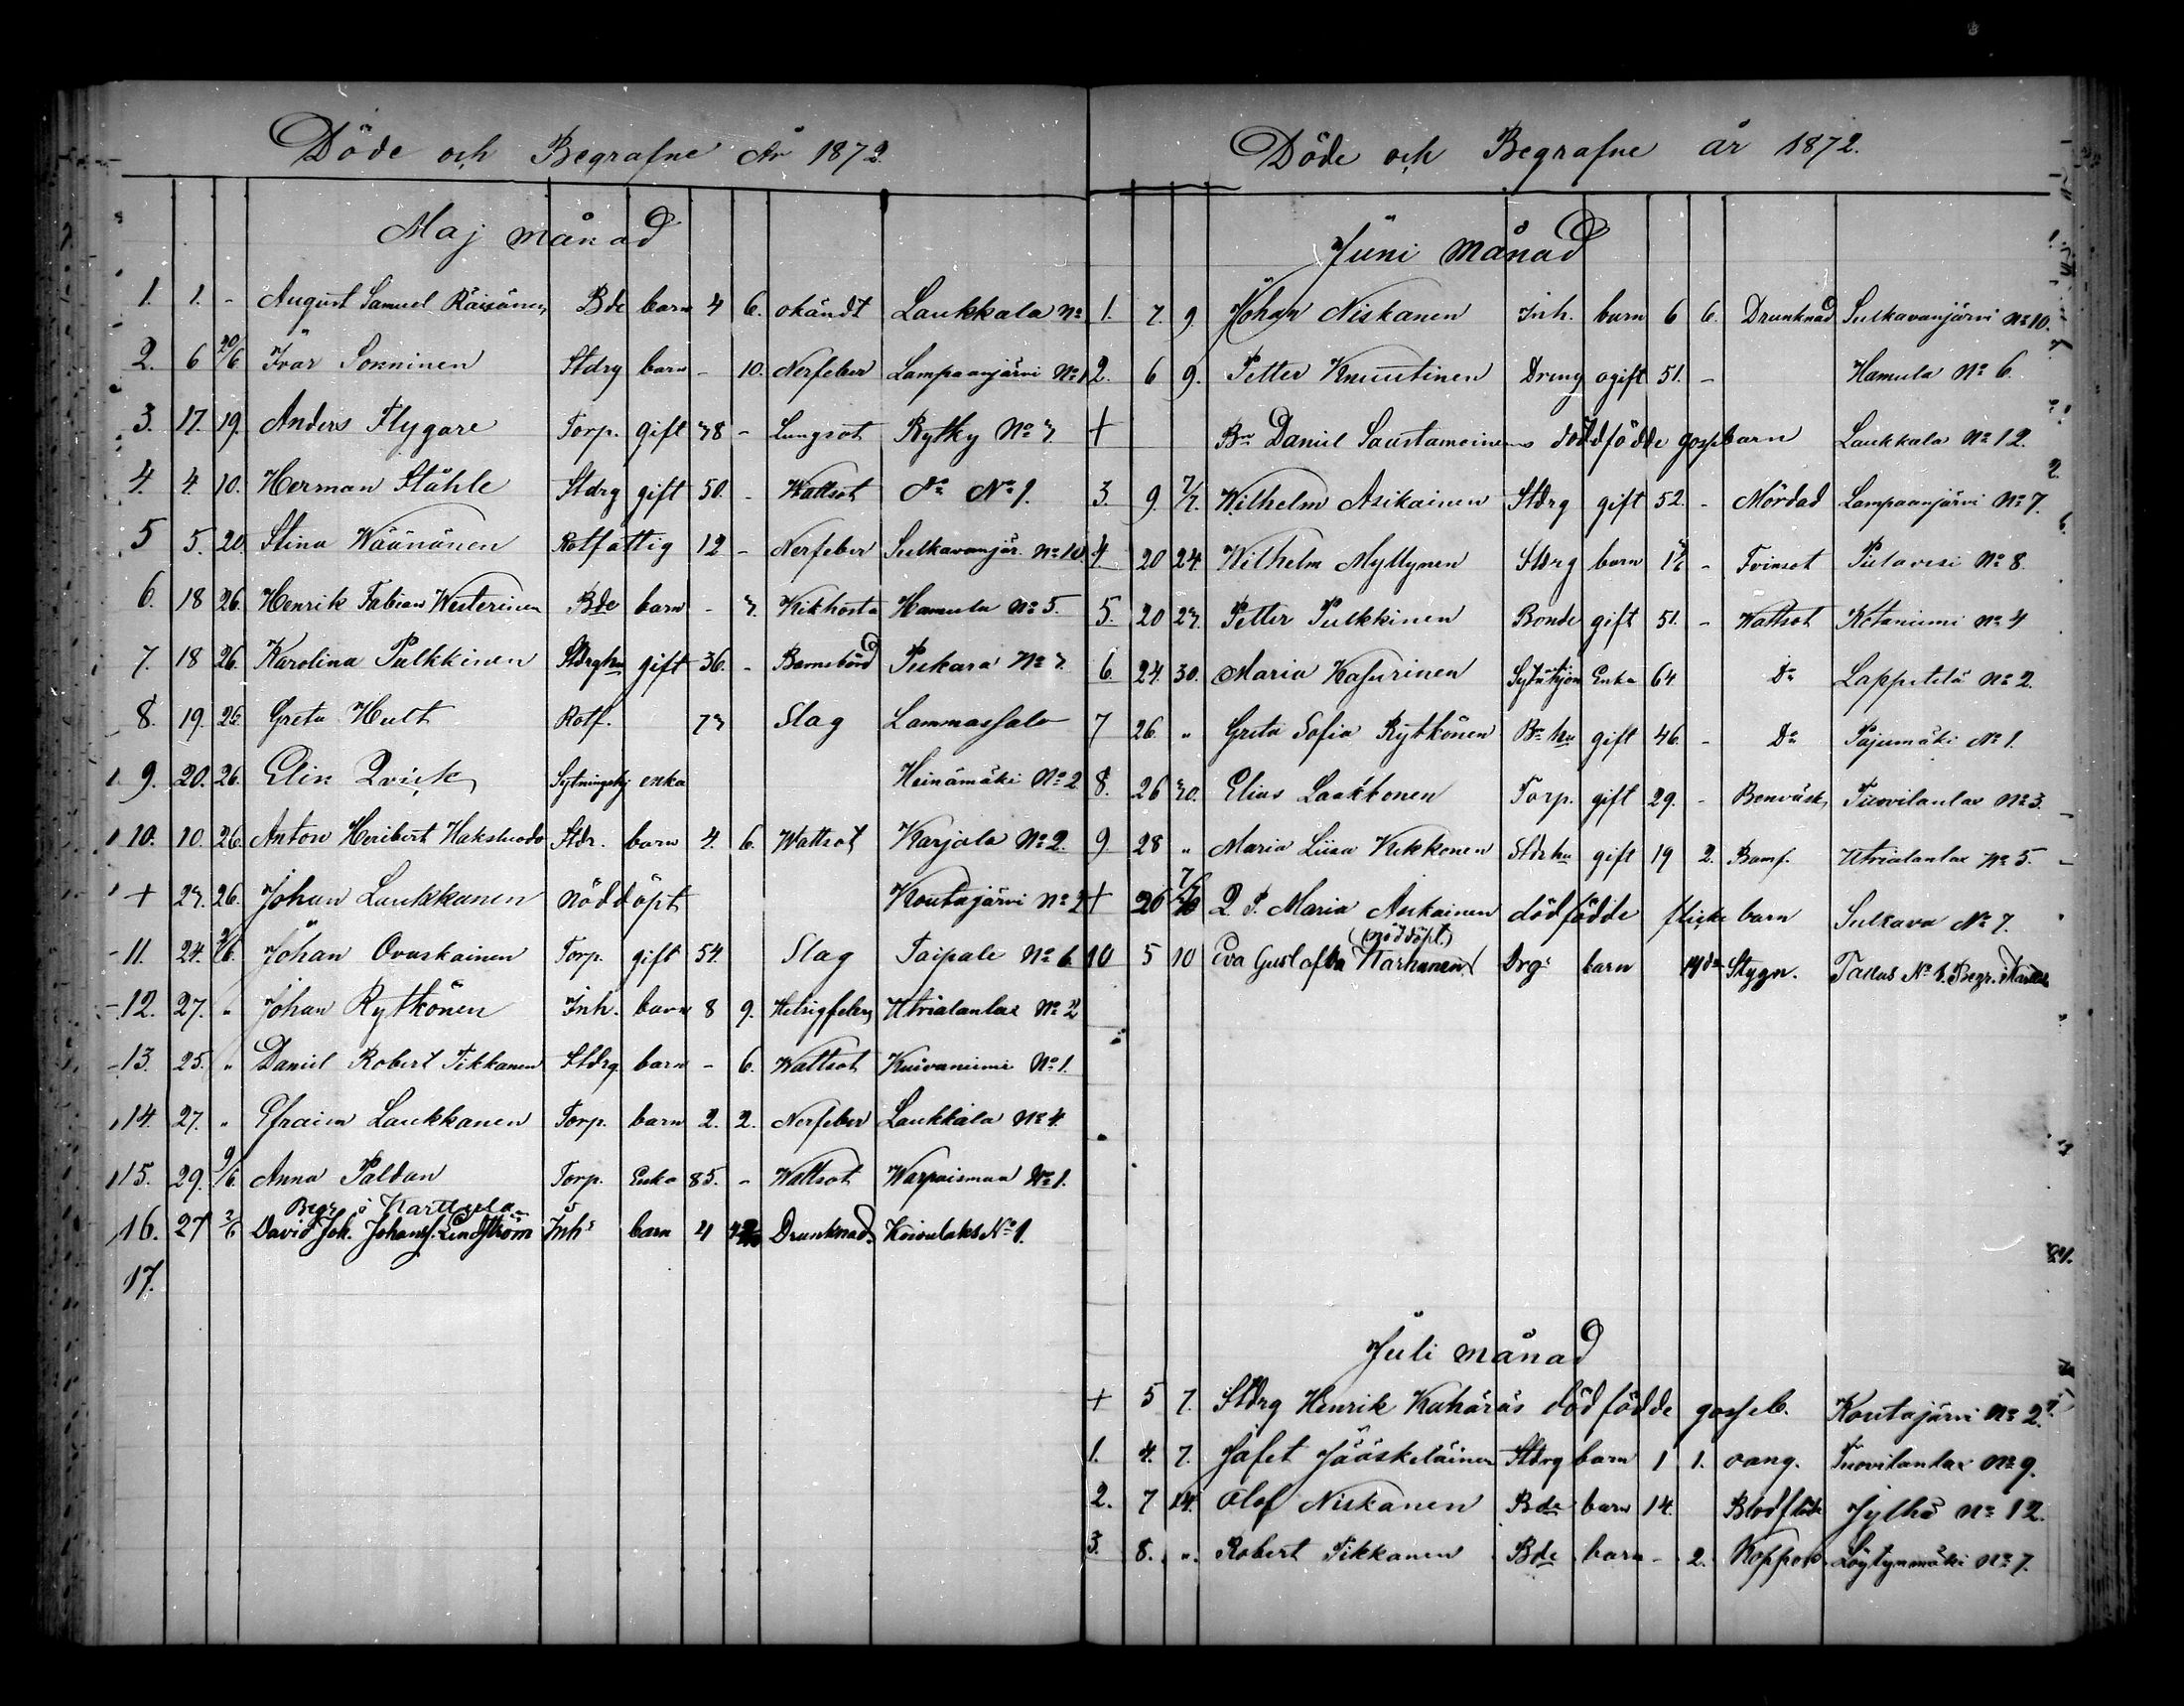 Döde och Begrafne År 1872.
Maj månad
1. 1. - August Samuel Räisänen Bde barn 4 6. okändt Laukkala No
2. 6 20/6 Ivar Sonninen Stdrg barn - 10. Nerfeber Lampaanjärvi No 1
3. 17. 19. Anders Flygare Torp. gift 78 - Lungsot Rytky No 7.
4. 4. 10. Herman Ståhle Stdrg gift 50. - Wattsot do No 9.
5 5. 20. Stina Wäänänen Rotfattig 12 - Nerfeber Sulkavanjär. No 10.
6. 18 26. Henrik Fabian Westerinen Bde barn - 7. Kikhosta Hamula No 5.
7. 18 26. Karolina Pulkkinen Stdrghu gift 36. - Barnsbörd Puskara No 7.
8. 19. 26. Greta Hult Rotf. 77 Slag Lammassalo
9. 20. 26. Elin Qvick Sytningshj enka Heinämäki No 2
10. 10. 26. Anton Heribert Stdr. barn 4. 6. Wattsot Karjala No 2.
+ 27. 26. Johan Laukkanen nöddöpt Koutajärvi No 2
11. 24. 2/6 Johan Ovaskainen Torp. gift 54. Slag Taipale No 6.
12. 27. " Johan Rytkönen Inh. barn 8 9. Utrialantax No 2
13. 25. " Daniel Robert Tikkanen Stdrg barn - 6. Wattsot Kuivaniemi No 1.
14. 27. " Efraim Laukkanen Torp. barn 2. 2. Nerfeber Laukkala No 4.
15. 29. 9/6 Anna Paldan Torp. Enka 85. - Wattsot Warpaismaa No 1.
Begr. i Karttula
16. 27 2/6 David Joh. Johansf. Lindström Inhs barn 4 Drunknad. Koivulaks No 1.
17.
Döde och Begrafne år 1872.
Juni månad
1. 7. 9. Johan Niskanen Inh. barn 6 6. Drunknad Sulkavanjärvi No 10.
2. 6 9. Petter Knuutinen Dreng ogift 51. - Hamula No 6.
+ Bn Daniel Saastamoinens dödfödde gossebarn Laukkala No 12.
3. 9. 7/7. Wilhelm Asikainen Stdrg gift 52. - Mördad Lampaanjärvi No 7.
4. 20 24. Wilhelm Myllynen Stdrg barn 1½ - Tvinsot Pielavesi No 8.
5. 20 27. Petter Pulkkinen Bonde gift 51. - Wattsot Kotaniemi No 4
6. 24. 30. Maria Kasurinen Sytnhjon Enka 64 Do Lappetelä No 2.
7 26. " Greta Sofia Rytkönen Bn hu gift 46. - Do Pajumäki No 1.
8. 26 30. Elias Laakkonen Torp. gift 29. - Tuovilantax No 3.
9 28 " Maria Liisa Kekkonen Stdr hu gift 19 2. Barnf. Utrialantax No 5.
+ 26 7/7 Q. P. Maria Asikainen dödfödde flicke barn Sulkava No 7.
(nöddöpt.)
10 5 10 Eva Gustafva Karhunen Drgs barn 14 da Stygn. Tallus No 8. Begr. i
Juli månad
+ 5 7. Stdrg Henrik Kuhäräs dödfödde gosseb. Koutajärvi No 2.
1. 4. 7. Jafet Jääskeläinen Stdrg barn 1 1. oang. Tuovilantax No 9.
2. 7 14. Olof Niskanen Bde barn 14. Jylhä No 12.
3. 8. " Robert Tikkanen Bde barn - 2. Koppor Löytynmäki No 7.